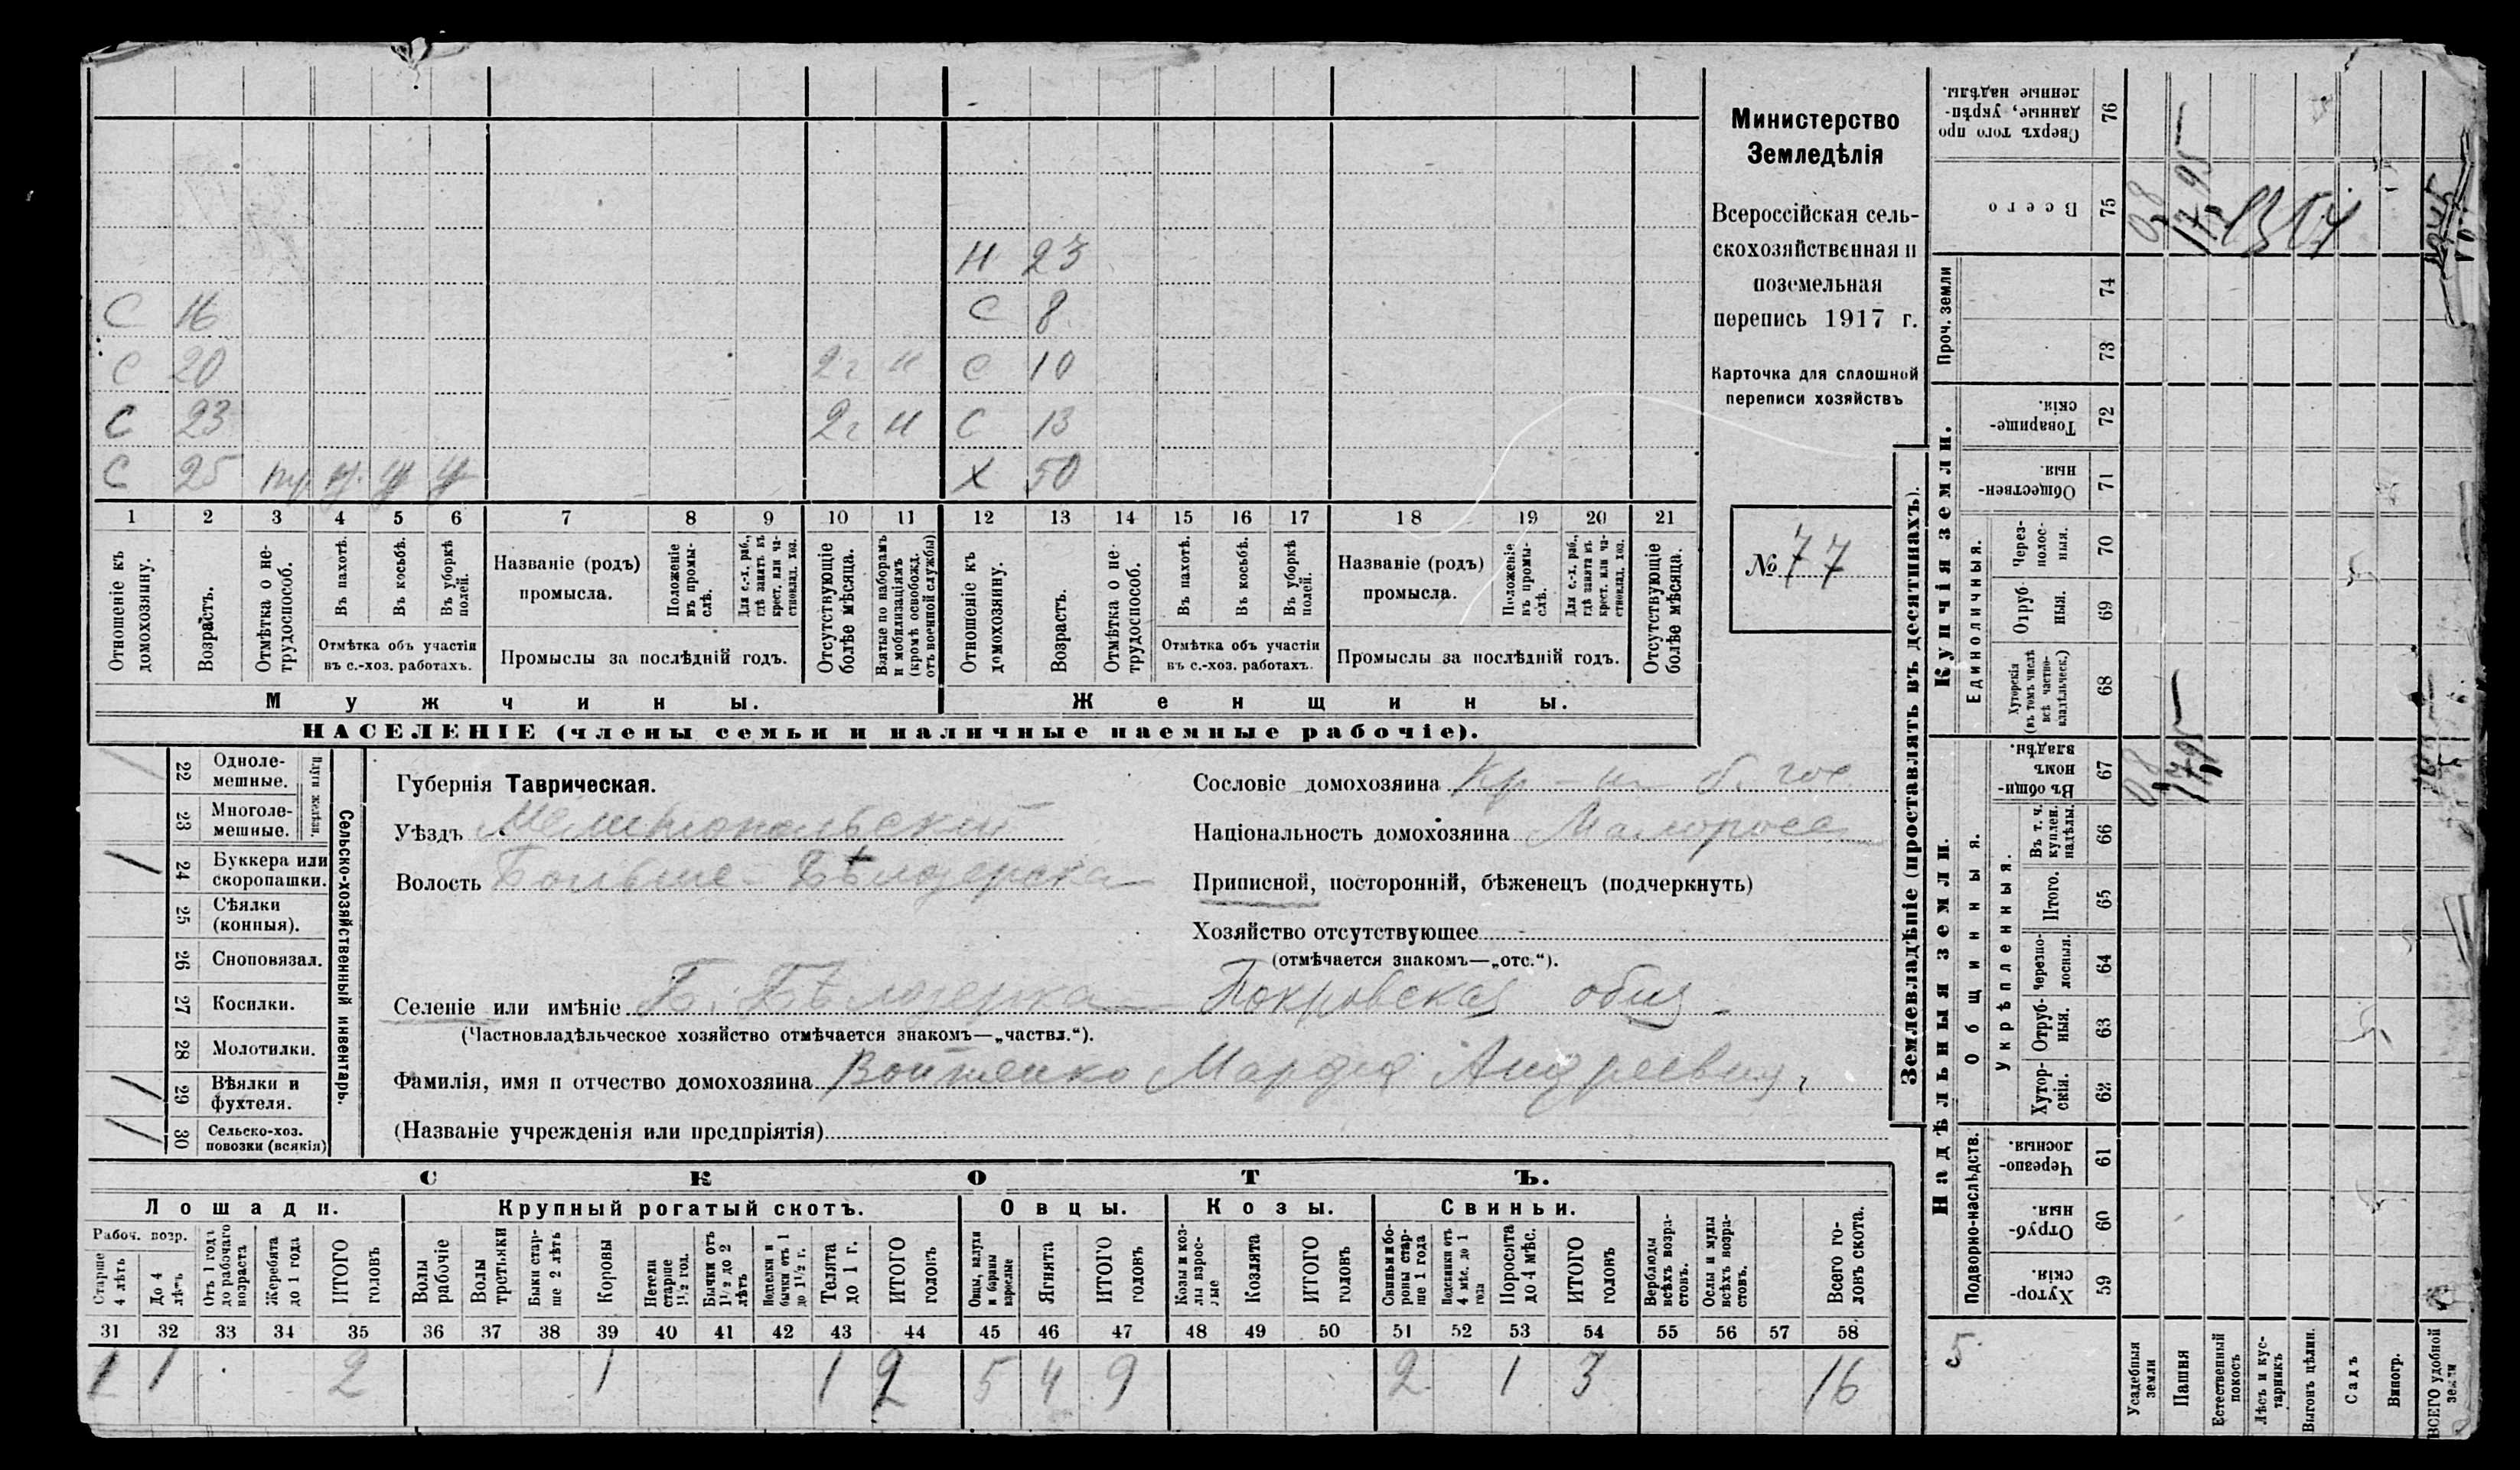 Н 23
С 16 С 8
С 20 2 г Н С 10
С 23 2 г Н С 13
С 25 Х 50
1 2 3 4 5 6 7 8 9 10 11 12 13 14 15 16 17 18 19 20 21
Отношеніе къ домохозяину.
Возрастъ.
Отмѣтка о нетрудоспособ.
Въ пахотѣ.
Въ косьбѣ.
Въ уборкѣ полей.
Отмѣтка объ участіи
въ с.-хоз. работахъ.
Названіе (родъ)
промысла.
Положеніе въ промыслѣ.
Для с.-х. раб., гдѣ занятъ въ крест. или частновлад. хоз.
Промыслы за послѣдній годъ.
Отсутствующіе болѣе мѣсяца.
Взятые по наборамъ и мобилизаціямъ (кромѣ освобожд. отъ военной службы)
Отношеніе къ домохозяину.
Возрастъ.
Отмѣтка о нетрудоспособ.
Въ пахотѣ.
Въ косьбѣ.
Въ уборкѣ полей.
Отмѣтка объ участіи
въ с.-хоз. работахъ.
Названіе (родъ)
промысла.
Положеніе въ промыслѣ.
Для с.-х. раб., гдѣ занята въ крест. или частновлад. хоз.
Промыслы за послѣдній годъ.
Отсутствующіе болѣе мѣсяца.
Мужчины. Женщины.
НАСЕЛЕНІЕ (члены семьи и наличные наемные рабочіе).
Министерство
Земледѣлія
Всероссійская сель-
скохозяйственная и
поземельная
перепись 1917 г.
Карточка для сплошной
переписи хозяйствъ
№ 77
Сельско-хозяйственный инвентарь.
Плуги желѣзн.
22 Одноле-
мешные.
23 Многоле-
мешные.
24 Буккера или
скоропашки.
25 Сѣялки
(конныя).
26 Сноповязал.
27 Косилки.
28 Молотилки.
29 Вѣялки и
фухтеля.
30 Сельско-хоз.
повозки (всякія)
Губернія Таврическая.
Уѣздъ Мелитопольскій
Волость Больше-Бѣлозерская
Сословіе домохозяина Кр-н б. гос
Національность домохозяина Малоросс
Приписной, посторонній, бѣженецъ (подчеркнуть)
Хозяйство отсутствующее
(отмѣчается знакомъ—„отс.“).
Селеніе или имѣніе Б. Бѣлозерка Покровская общ
(Частновладѣльческое хозяйство отмѣчается знакомъ—„частвл.“).
Фамилія, имя и отчество домохозяина Войтенко Марфа Андреевна
(Названіе учрежденія или предпріятія)
СКОТЪ.
Лошади. Крупный рогатый скотъ. Овцы. Козы. Свиньи.
Рабоч. возр.
Старше 4 лѣтъ
До 4 лѣтъ
Отъ 1 года до рабочаго возраста
Жеребята до 1 года
ИТОГО головъ
Волы рабочіе
Волы третьяки
Быки старше 2 лѣтъ
Коровы
Нетели старше 1½ год.
Бычки отъ 1½ до 2 лѣтъ
Подтелки и бычки отъ 1 до 1½ г.
Телята до 1 г.
ИТОГО головъ
Овцы, валухи и бараны взрослые
Ягнята
ИТОГО головъ
Козы и козлы взрослые
Козлята
ИТОГО головъ
Свиньи и боровы старше 1 года
Подсвинки отъ 4 мѣс. до 1 года
Поросята до 4 мѣс.
ИТОГО головъ
Верблюды всѣхъ возрастовъ.
Ослы и мулы всѣхъ возрастовъ.
Всего головъ скота.
31 32 33 34 35 36 37 38 39 40 41 42 43 44 45 46 47 48 49 50 51 52 53 54 55 56 57 58
1 1 2 1 1 2 5 4 9 2 1 3 16
Землевладѣніе (проставлять въ десятинахъ).
Надѣльныя земли. Купчія земли. Проч. земли
Подворно-наслѣдств.
Общинныя.
Укрѣпленныя.
Единоличныя.
Хуторскія. 59
Отрубныя. 60
Черезполосныя. 61
Хуторскія. 62
Отрубныя. 63
Черезполосныя. 64
Итого. 65
Въ т. ч. куплен. надѣлы. 66
Въ общинномъ владѣн. 67
Хуторскія (въ томъ числѣ всѣ частновладѣльческ.) 68
Отрубныя. 69
Черезполосныя. 70
Общественныя 71
Товарищескія. 72
73
74
Всего 75
Сверхъ того проданные, укрѣпленные надѣлы. 76
5
Усадебныя земли
Пашня
Естественный покосъ
Лѣсъ и кустарникъ
Выгонъ цѣлин.
Садъ
Виногр.
ВСЕГО удобной земли